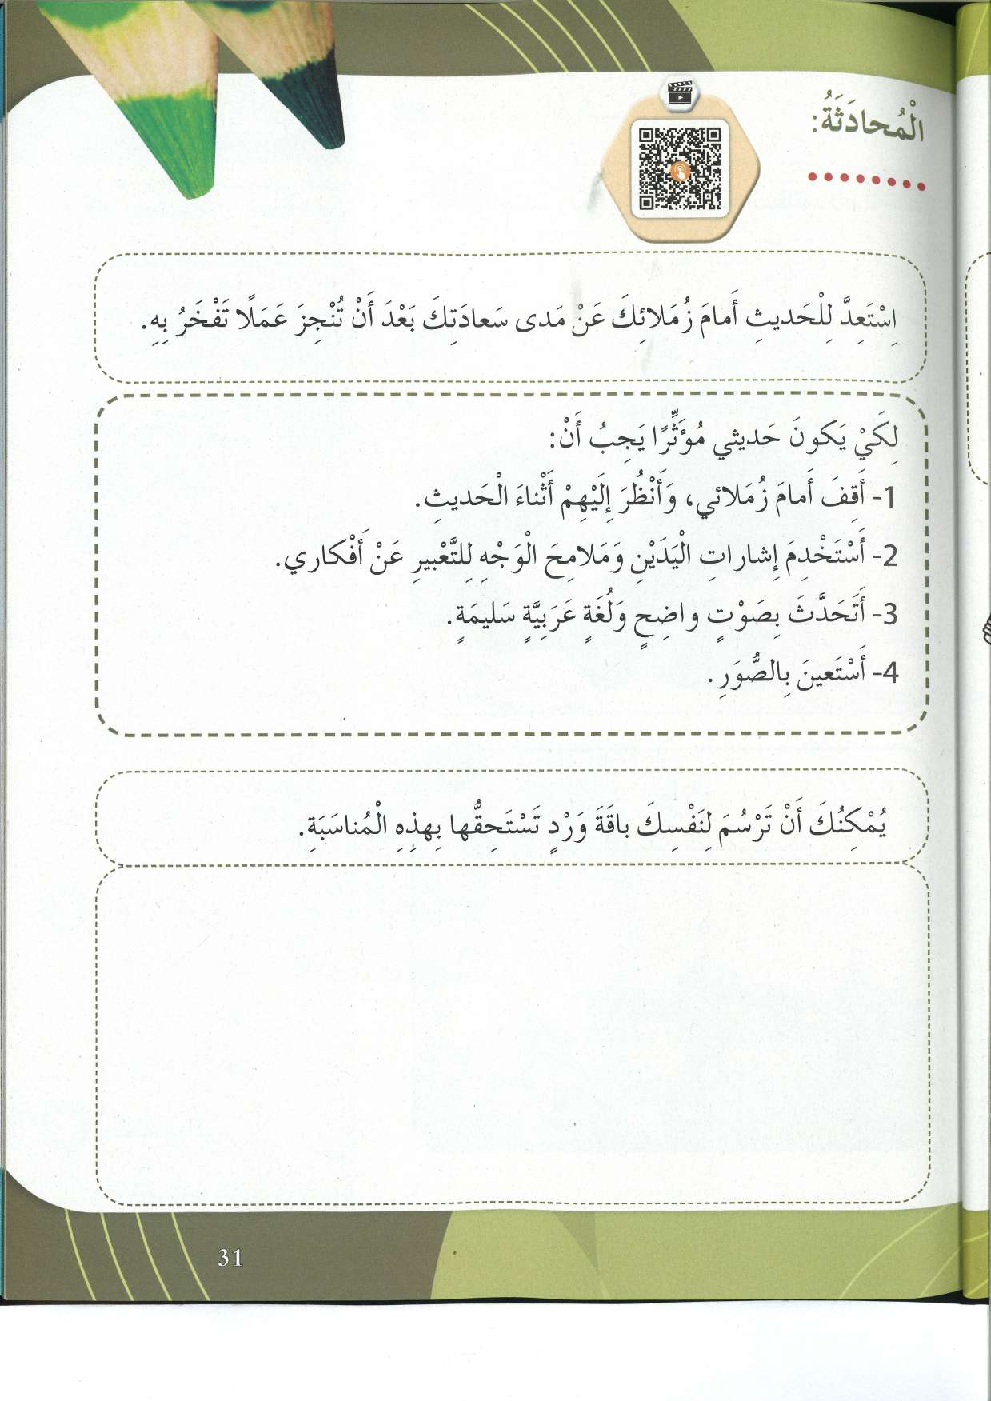 الْمُحادَثَةُ:
اِسْتَعِدَّ لِلْحَديثِ أَمامَ زُمَلائِكَ عَنْ مَدى سَعادَتِكَ بَعْدَ أَنْ تُنْجِزَ عَمَلًا تَفْخَرُ بِهِ.
لِكَيْ يَكونَ حَديثي مُؤَثِّرًا يَجِبُ أَنْ:
1- أَقِفَ أَمامَ زُمَلائي، وَأَنْظُرَ إِلَيْهِمْ أَثْناءَ الْحَديثِ.
2- أَسْتَخْدِمَ إِشاراتِ الْيَدَيْنِ وَمَلامِحَ الْوَجْهِ لِلتَّعْبيرِ عَنْ أَفْكاري.
3- أَتَحَدَّثَ بِصَوْتٍ واضِحٍ وَلُغَةٍ عَرَبِيَّةٍ سَليمَةٍ.
4- أَسْتَعينَ بِالصُّوَرِ.
يُمْكِنُكَ أَنْ تَرْسُمَ لِنَفْسِكَ باقَةَ وَرْدٍ تَسْتَحِقُّها بِهذِهِ الْمُناسَبَةِ.
31